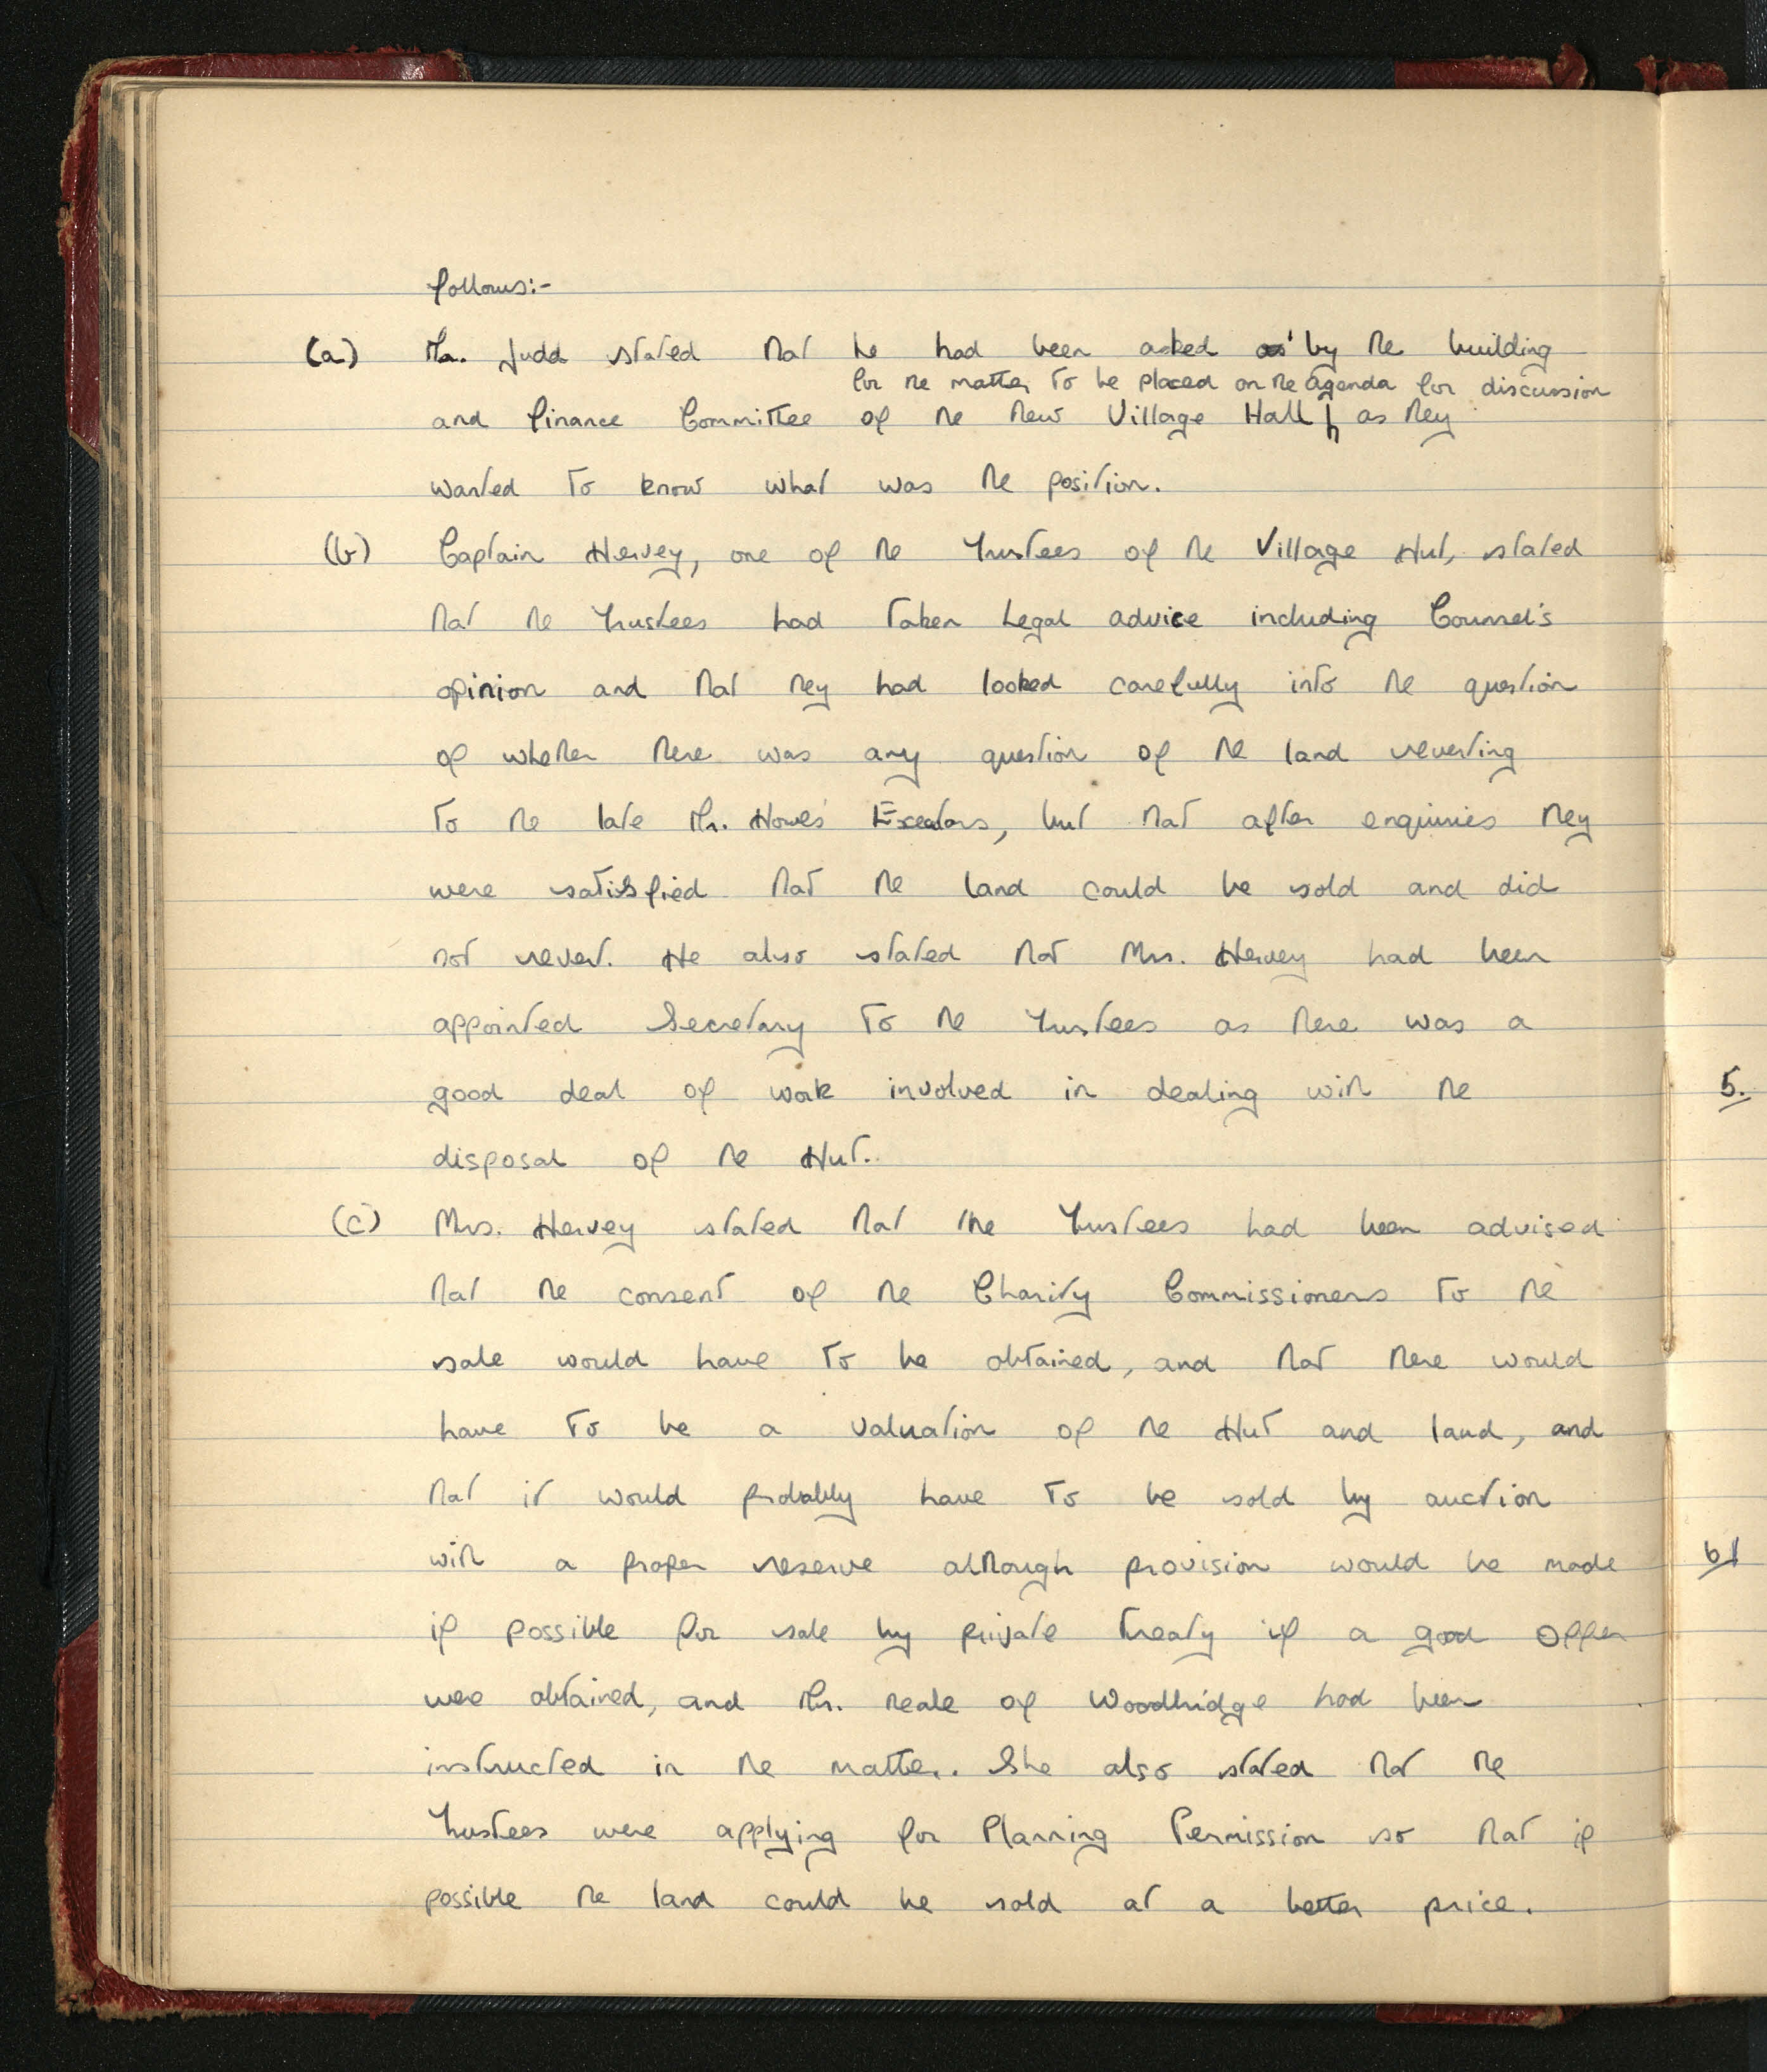 follows:-
(a) Mr. Judd stated that he had been asked by the building
for the matter to be placed on the agenda for discussion
and finance Committee of the New Village Hall as they
wanted to know what was the position.
(b) Captain Hervey, one of the Trustees of the Village Hut, stated
that the Trustees had taken Legal advice including Counsel's
opinion and that they had looked carefully into the question
of whether there was any question of the land reverting
to the late Mr. Howes' Executors, but that after enquiries they
were satisfied that the land could be sold and did
not revert. He also stated that Mrs. Hervey had been
appointed Secretary to the Trustees as there was a
good deal of work involved in dealing with the
disposal of the Hut.
(c) Mrs. Hervey stated that the Trustees had been advised
that the consent of the Charity Commissioners to the
sale would have to be obtained, and that there would
have to be a valuation of the Hut and land, and
that it would probably have to be sold by auction
with a proper reserve although provision would be made
if possible for sale by private treaty if a good offer
were obtained, and Mr. Neale of Woodbridge had been
instructed in the matter. She also stated that the
Trustees were applying for Planning Permission so that if
possible the land could be sold at a better price.
5.